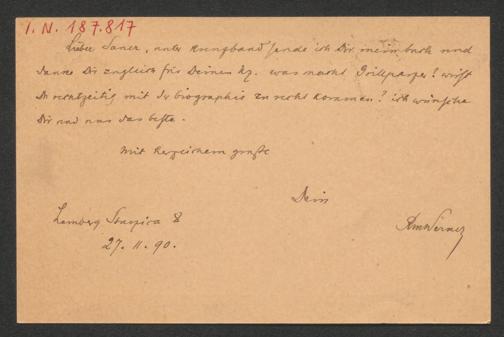 I. N. 187.817
Lieber Sauer, unter Kreuzband sende ich Dir mein buch und
danke Dir zugleich für Deinen was macht Grillparzer? wirst
Du rechtzeitig mit der biographie zu recht kommen? ich wünsche
Dir und uns das beste.
Mit herzlichem grusse
Dein
Lemberg 8
RMWerner
27. 11. 90.